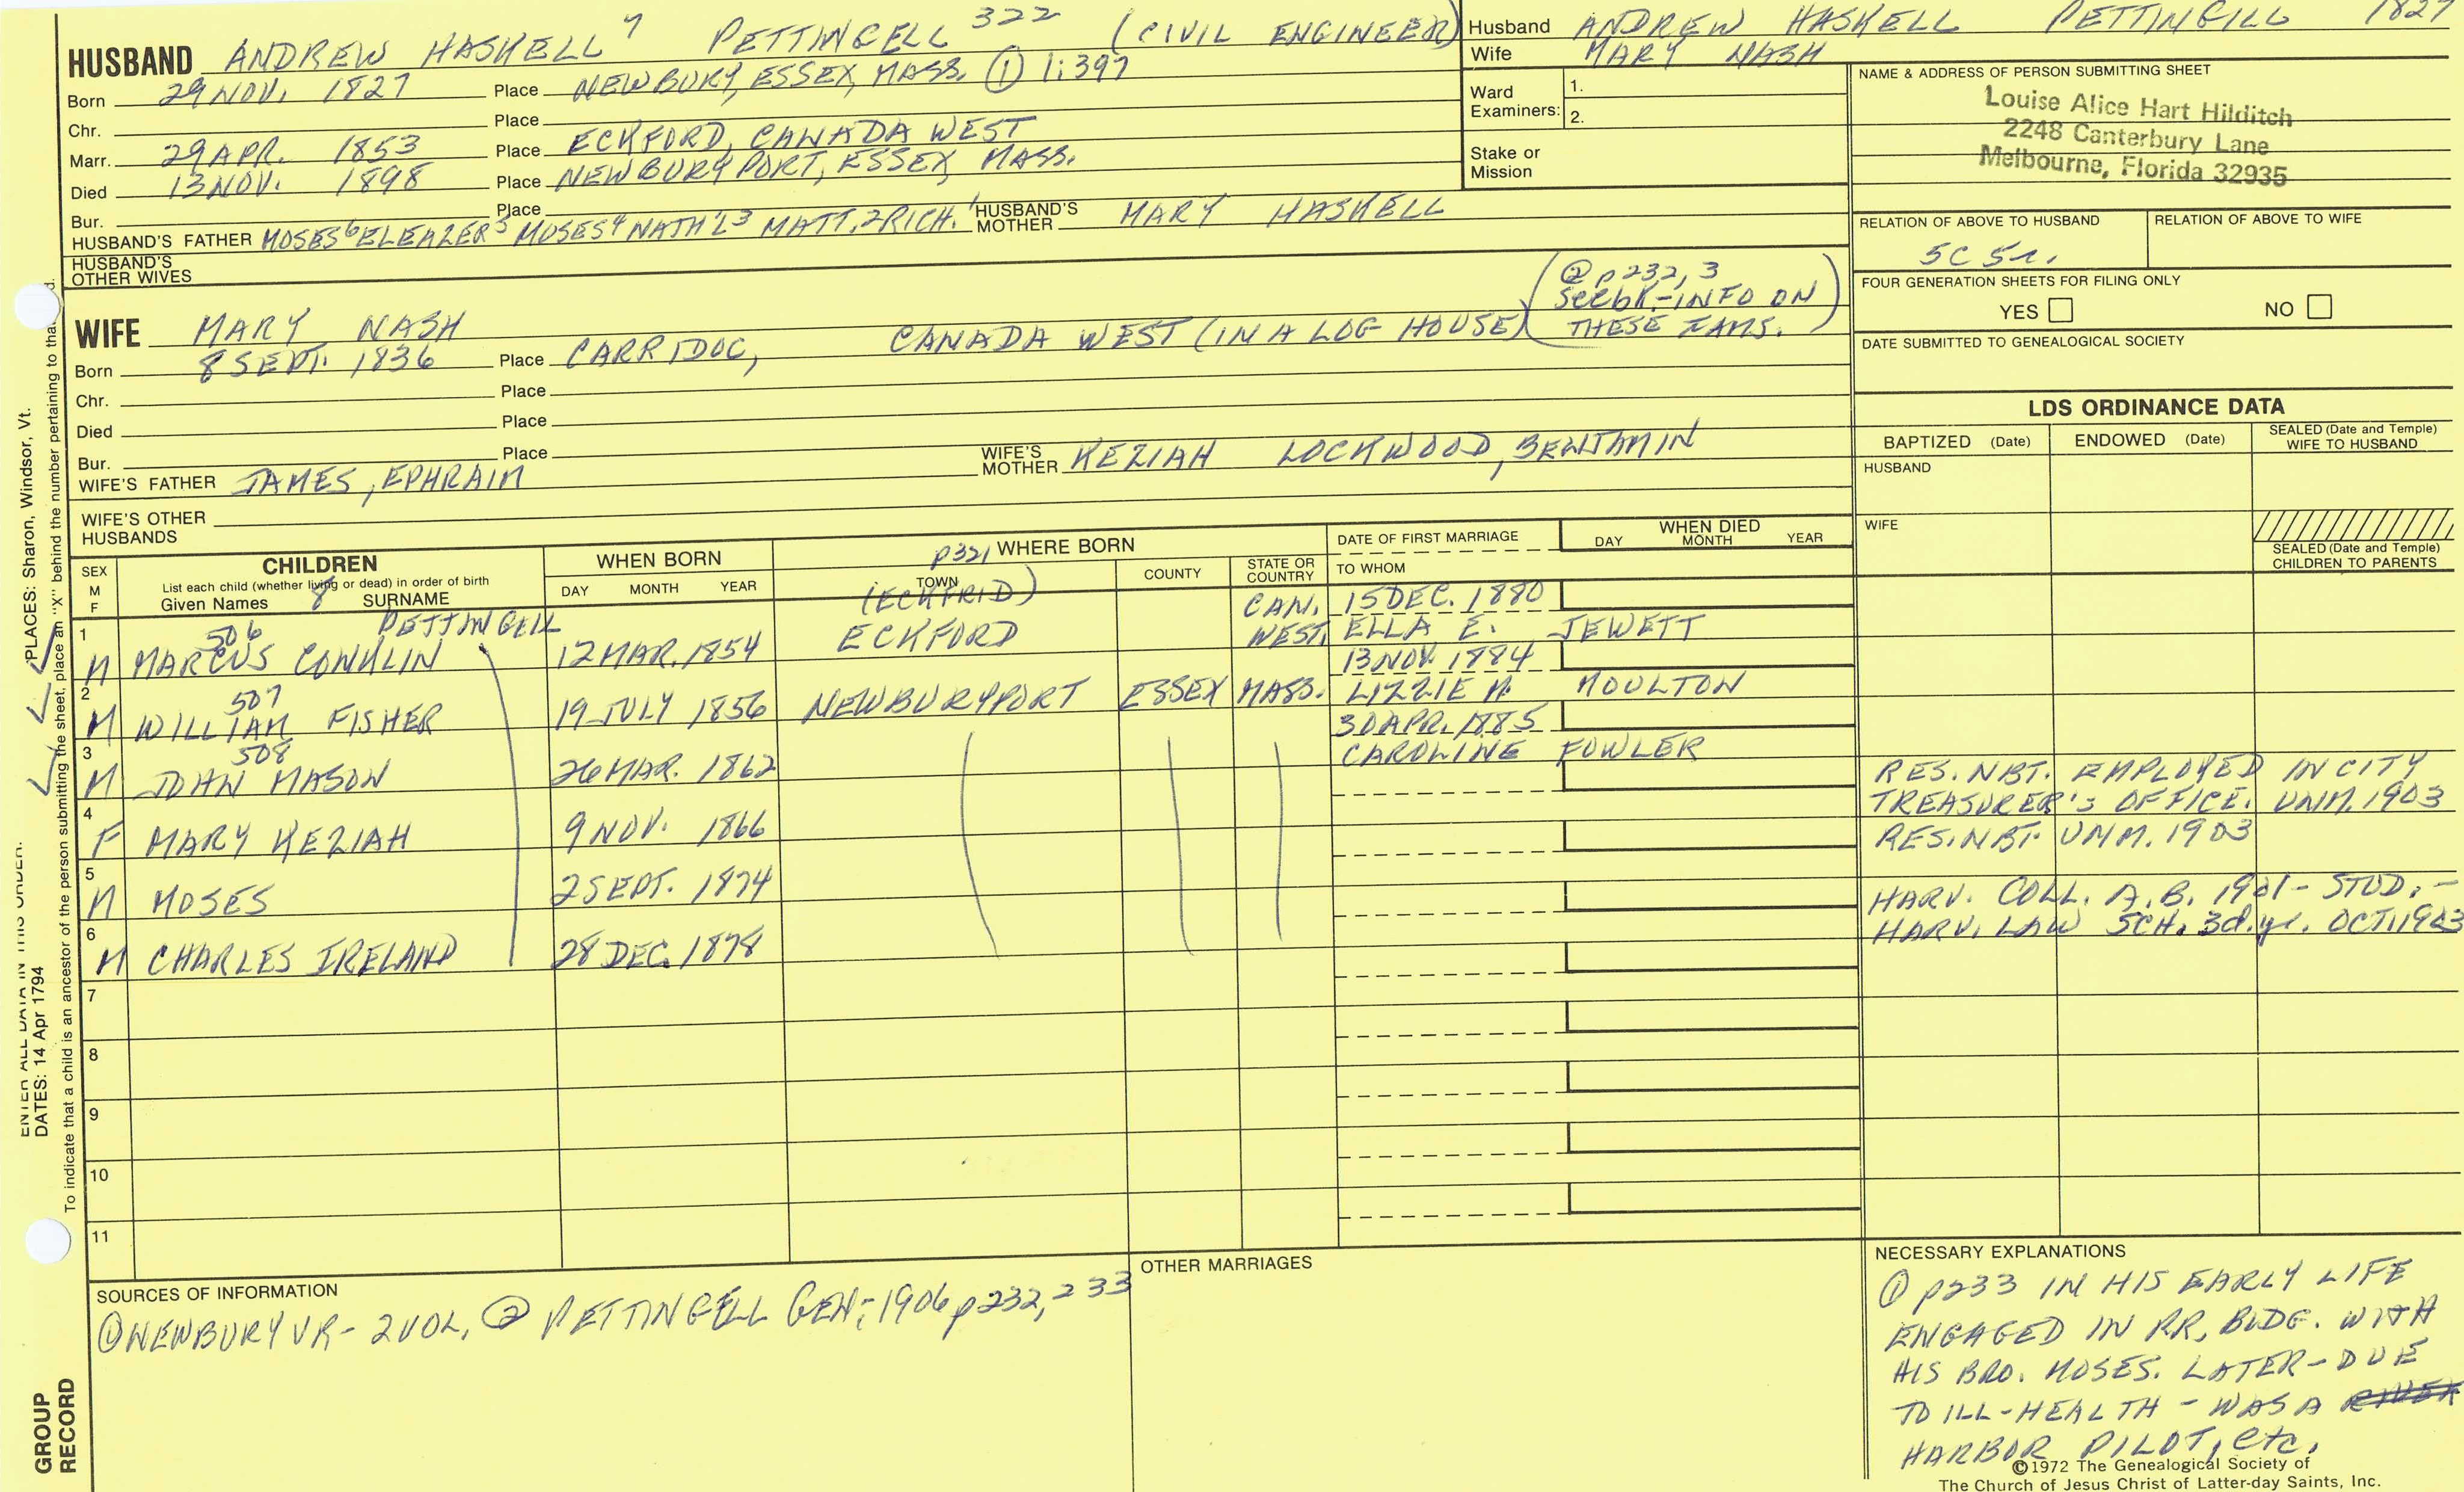 HUSBAND ANDREW HASKELL 7 PETTINGELL 322 (CIVIL ENGINEER)
Born 29 NOV. 1827 Place NEWBURY, ESSEX, MASS. ① 1:397
Chr. Place
Marr. 29 APR. 1853 Place ECKFORD, CANADA WEST
Died 13 NOV. 1898 Place NEWBURYPORT, ESSEX, MASS.
Bur. Place
HUSBAND'S FATHER MOSES 6 ELEAZER 5 MOSES 4 NATH'L 3 MATT. 2 RICH. 1 HUSBAND'S MOTHER MARY HASKELL
HUSBAND'S OTHER WIVES
Husband ANDREW HASKELL PETTINGILL 1827
Wife MARY NASH
Ward Examiners: 1.
2.
Stake or Mission
NAME & ADDRESS OF PERSON SUBMITTING SHEET
Louise Alice Hart Hilditch
2248 Canterbury Lane
Melbourne, Florida 32935
RELATION OF ABOVE TO HUSBAND RELATION OF ABOVE TO WIFE
5C 5r.
FOUR GENERATION SHEETS FOR FILING ONLY
YES NO
DATE SUBMITTED TO GENEALOGICAL SOCIETY
WIFE MARY NASH
(② p232, 3
SEE bk-INFO ON
THESE FAMS.)
Born 8 SEPT. 1836 Place CARRIDOC, CANADA WEST (IN A LOG HOUSE)
Chr. Place
Died Place
Bur. Place
WIFE'S FATHER JAMES, EPHRAIM WIFE'S MOTHER KEZIAH LOCKWOOD, BENJAMIN
WIFE'S OTHER HUSBANDS
LDS ORDINANCE DATA
BAPTIZED (Date) ENDOWED (Date) SEALED (Date and Temple) WIFE TO HUSBAND
HUSBAND
WIFE
SEALED (Date and Temple) CHILDREN TO PARENTS
SEX M F
CHILDREN
List each child (whether living or dead) in order of birth
Given Names 8 SURNAME
WHEN BORN
DAY MONTH YEAR
p321 WHERE BORN
TOWN COUNTY STATE OR COUNTRY
DATE OF FIRST MARRIAGE
TO WHOM
WHEN DIED
DAY MONTH YEAR
1 506 PETTINGELL (ECKFRID) CAN. 15 DEC. 1880
M MARCUS CONKLIN 12 MAR. 1854 ECKFORD WEST, ELLA E. JEWETT
2 507 13 NOV. 1884
M WILLIAM FISHER 19 JULY 1856 NEWBURYPORT ESSEX MASS. LIZZIE M. MOULTON
3 508 30 APR. 1885
M JOHN MASON 26 MAR. 1862 CAROLINE FOWLER
4
F MARY KEZIAH 9 NOV. 1866 RES. NBT. EMPLOYED IN CITY
TREASURER'S OFFICE. UNM. 1903
5
M MOSES 2 SEPT. 1874 RES. NBT. UNM. 1903
6
M CHARLES IRELAND 28 DEC. 1878 HARV. COLL. A.B. 1901- STUD. -
HARV. LAW SCH. 3d. yr. OCT. 1903
7
8
9
10
11
SOURCES OF INFORMATION
① NEWBURY VR- 2 VOL, ② PETTINGELL GEN; 1906 p232, 233
OTHER MARRIAGES
NECESSARY EXPLANATIONS
① p233 IN HIS EARLY LIFE
ENGAGED IN RR, BLDG. WITH
HIS BRO. MOSES. LATER-DUE
TO ILL-HEALTH - WAS A
HARBOR PILOT, etc.
©1972 The Genealogical Society of
The Church of Jesus Christ of Latter-day Saints, Inc.
PLACES: Sharon, Windsor, Vt.
ENTER ALL DATA IN THIS ORDER:
DATES: 14 Apr 1794
To indicate that a child is an ancestor of the person submitting the sheet, place an "X" behind the number pertaining to that
GROUP
RECORD